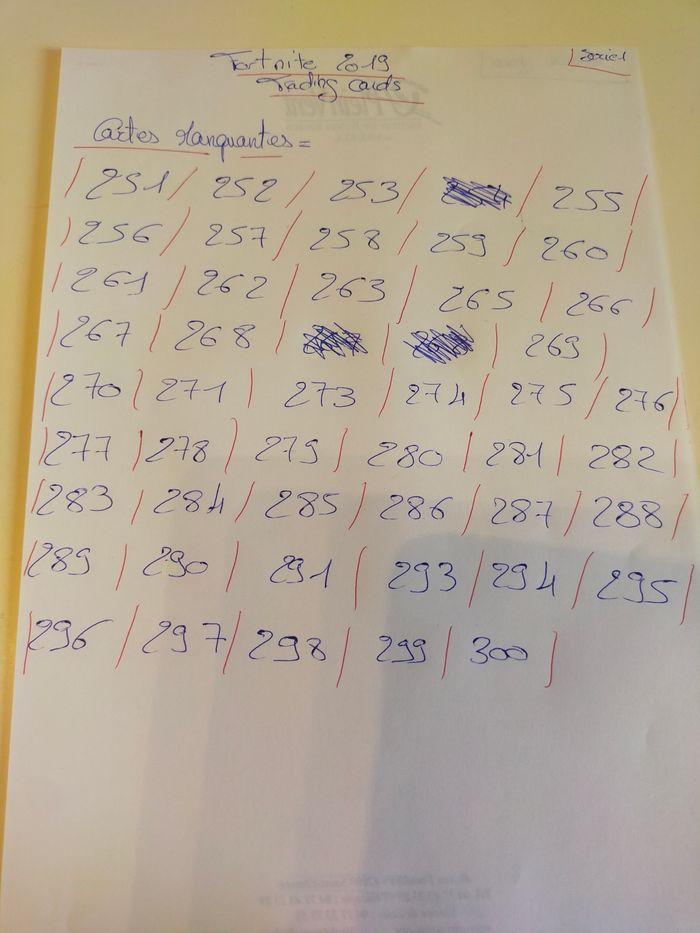 Fortnite 2019
Serie 1
Trading cards
Cartes Manquantes =
251 / 252 / 253 / / 255
256 / 257 / 258 / 259 / 260
261 / 262 / 263 / 265 / 266
267 / 268 / / / 269
270 / 271 / 273 / 274 / 275 / 276
277 / 278 / 279 / 280 / 281 / 282
283 / 284 / 285 / 286 / 287 / 288
289 / 290 / 291 / 293 / 294 / 295
296 / 297 / 298 / 299 / 300